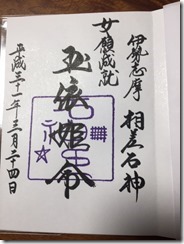 伊勢志摩 相差石神
女願成就
玉依姫命
平成三十一年三月二十四日